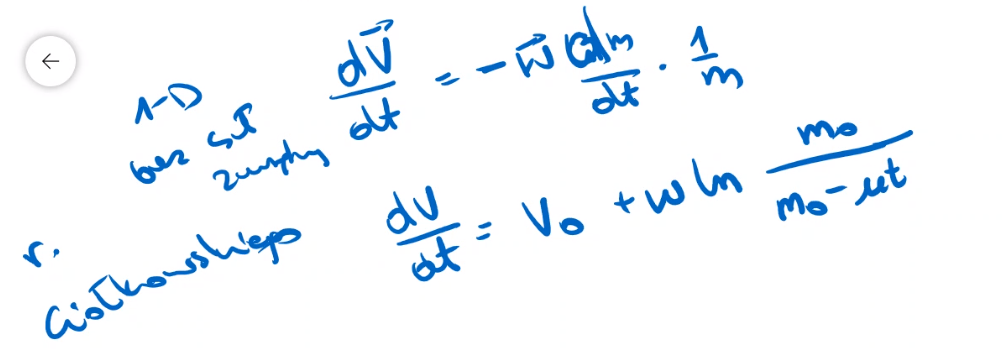 1-D
bez sił
zewnętrz
dV⃗/dt = - w⃗ dm/dt · 1/m
r.
Ciołkowskiego
dV/dt = V₀ + w ln m₀/(m₀ - μt)